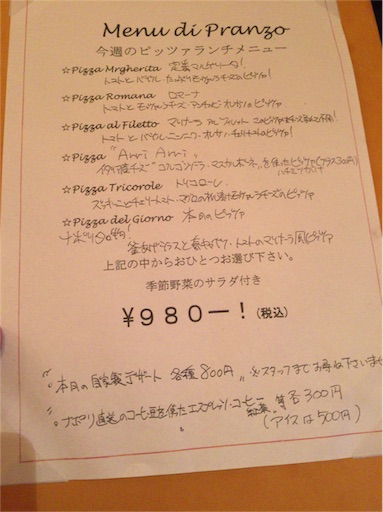 Menu di Pranzo
今週のピッツァランチメニュー
☆Pizza Mrgherita 定番マルゲリータ!
トマトとバジル たっぷりモッツァレラチーズのピッツァ!
☆Pizza Romana ロマーナ
トマトとモッツァレラチーズ・アンチョビ・オレガノのピッツァ
☆Pizza al Filetto マリナーラ
トマトとバジル・ニンニク・オレガノ・チェリートマトのピッツァ!
☆Pizza "Ami Ami"
イタリア産チーズ"ゴルゴンゾーラ・マスカルポーネ"を使ったピッツァ(プラス200円)
ハチミツ
☆Pizza Tricorole トリコローレ
ズッキーニとチェリートマト・マグロの モッツァレラチーズのピッツァ
☆Pizza del Giorno 本日のピッツァ
ナポリ
釜あげシラスと春キャベツ・トマトのマリナーラ風ピッツァ
上記の中からおひとつお選び下さい。
季節野菜のサラダ付き
¥980ー!(税込)
本日の自家製デザート 各種800円 ※スタッフまでお尋ね下さいませ
ナポリ直送のコーヒー豆を使たエスプレッソ・コーヒー 紅茶 等各300円
(アイスは500円)